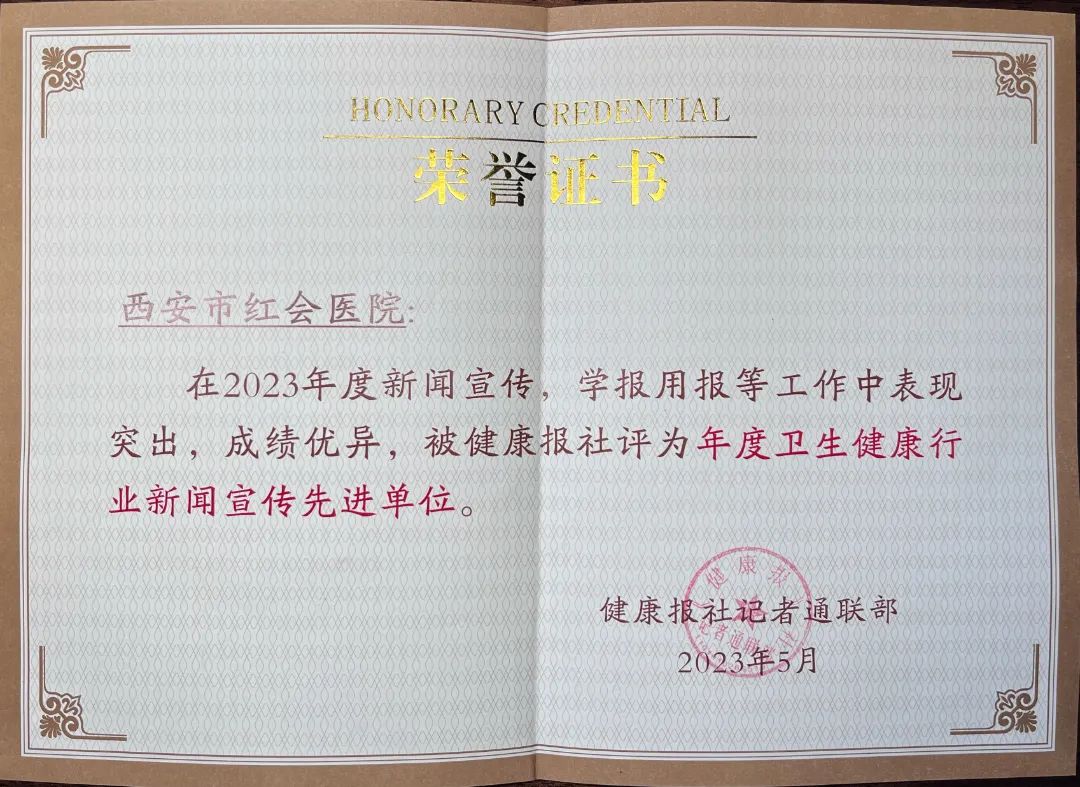 HONORARY CREDENTIAL
荣誉证书
西安市红会医院:
在2023年度新闻宣传，学报用报等工作中表现
突出，成绩优异，被健康报社评为年度卫生健康行
业新闻宣传先进单位。
健康报社记者通联部
2023年5月
健康报社
记者通联部